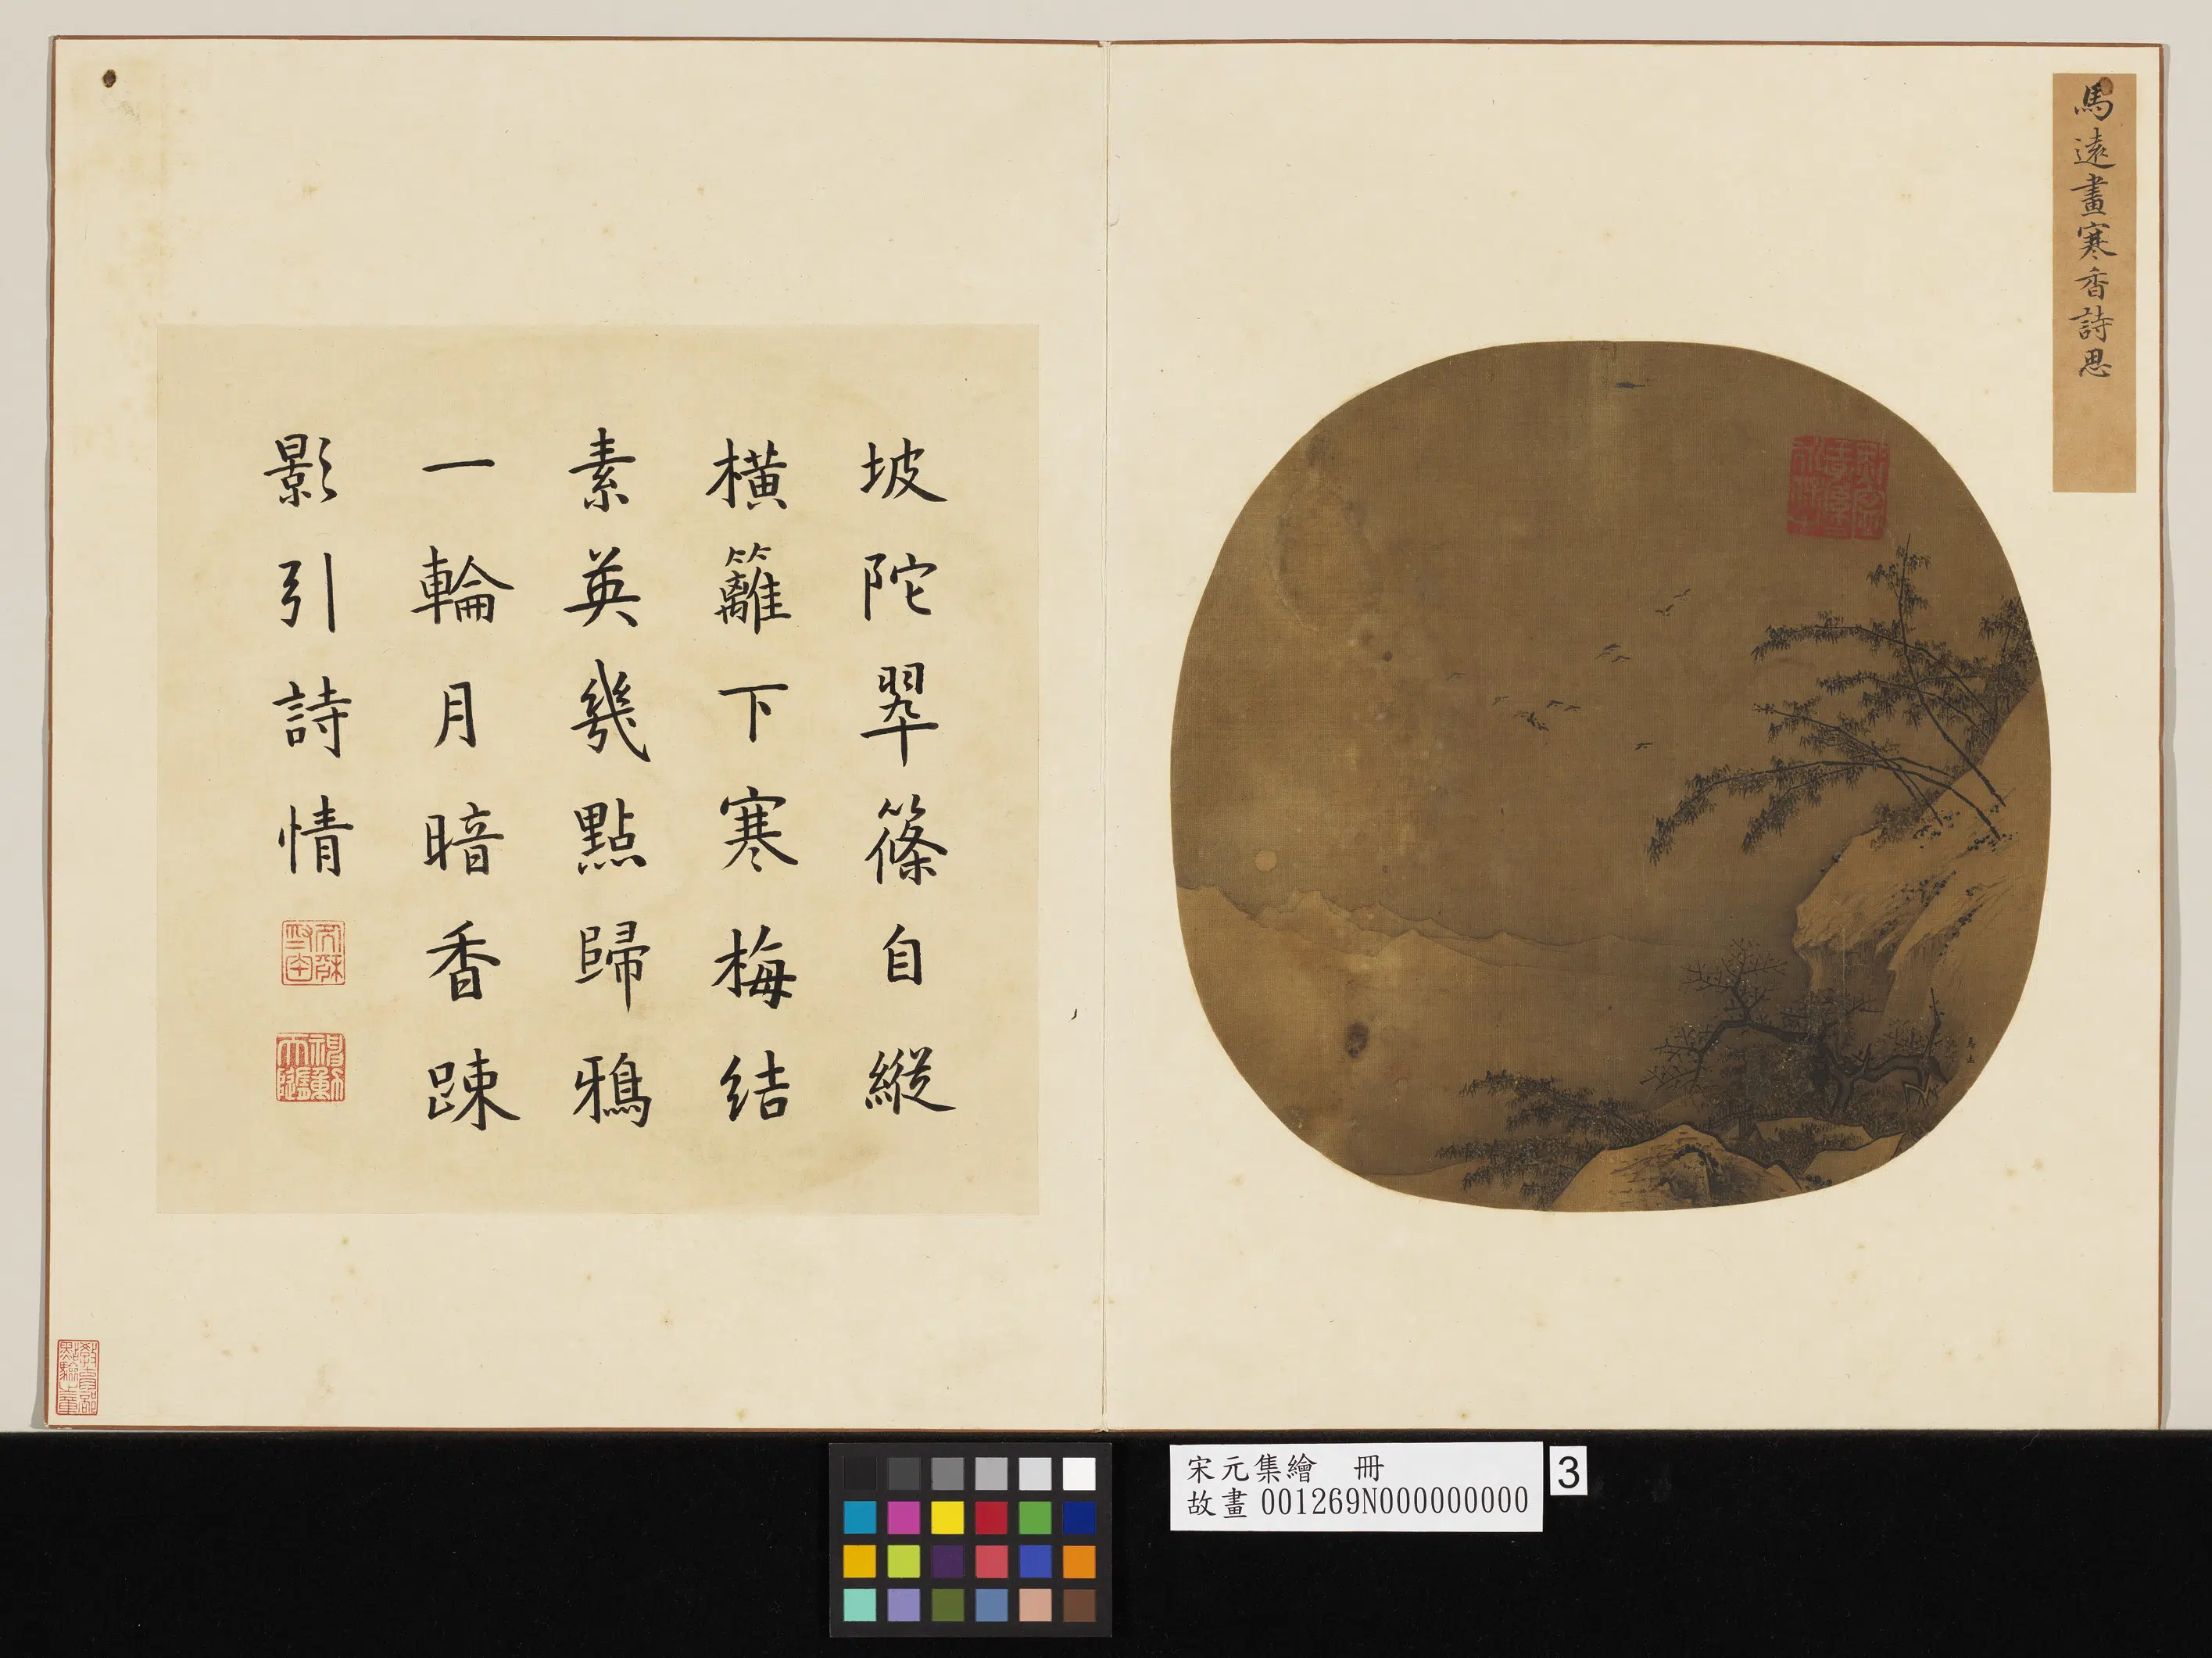 馬遠畫寒香詩思
坡陀翠篠自縱
橫籬下寒梅結
素英幾點歸鴉
一輪月暗香踈
影引詩情
教育部點驗之章
宋元集繪 冊
故畫 001269N000000000
3